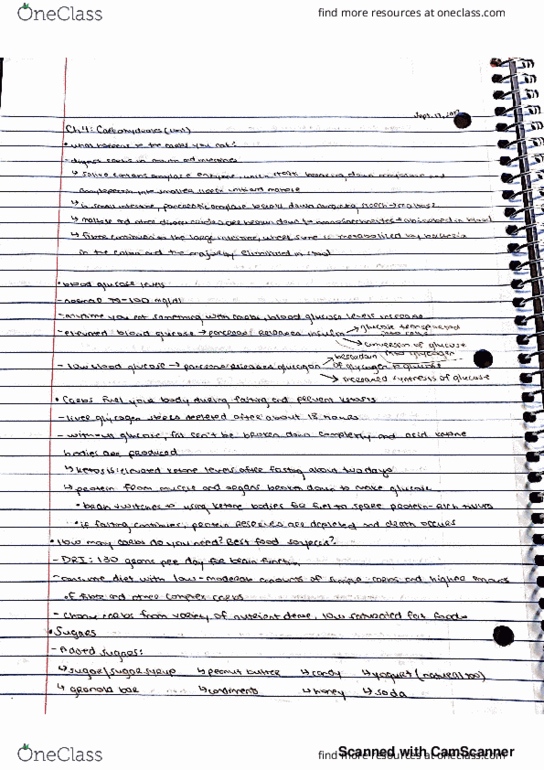 OneClass
find more resources at oneclass.com
Sept. 17, 2017
Ch 4: Carbohydrates (cont)
• What happens to the carbs you eat?
- digest carbs in mouth and intestines
↳ saliva contains amylase enzyme, which starts breaking down amylose and
amylopectin into smaller starch units and maltose
↳ in small intestine, pancreatic amylase breaks down remaining starch → maltose
↳ maltose and other disaccharides are broken down to monosaccharides → absorbed in blood
↳ fibre continues to the large intestine, where some is metabolized by bacteria
in the colon and the majority eliminated in stool
• blood glucose levels
- normal 70-100 mg/dl
- anytime you eat something with carbs, blood glucose levels increase
- elevated blood glucose → pancreas releases insulin → glucose transported into cells
→ conversion of glucose into glycogen
- low blood glucose → pancreas releases glucagon → breakdown of glycogen to glucose
→ increased synthesis of glucose
• Carbs fuel your body during fasting and prevent ketosis
- liver glycogen stores depleted after about 18 hours
- without glucose, fat can't be broken down completely and acid ketone
bodies are produced
↳ ketosis: elevated ketone levels after fasting about two days
↳ protein from muscle and organs broken down to make glucose
• brain switches to using ketone bodies for fuel to spare protein-rich tissues
• if fasting continues, protein reserves are depleted and death occurs
• How many carbs do you need? Best food sources?
- DRI: 130 grams per day for brain function
- consume diet with low-moderate amounts of simple carbs and higher amounts
of fibre and other complex carbs
- choose carbs from variety of nutrient dense, low saturated fat foods
• Sugars
- Added sugars:
↳ sugar/sugar syrup ↳ peanut butter ↳ candy ↳ yogurt (natural too)
↳ granola bar ↳ condiments ↳ honey ↳ soda
OneClass
find more resources at oneclass.com
Scanned with CamScanner